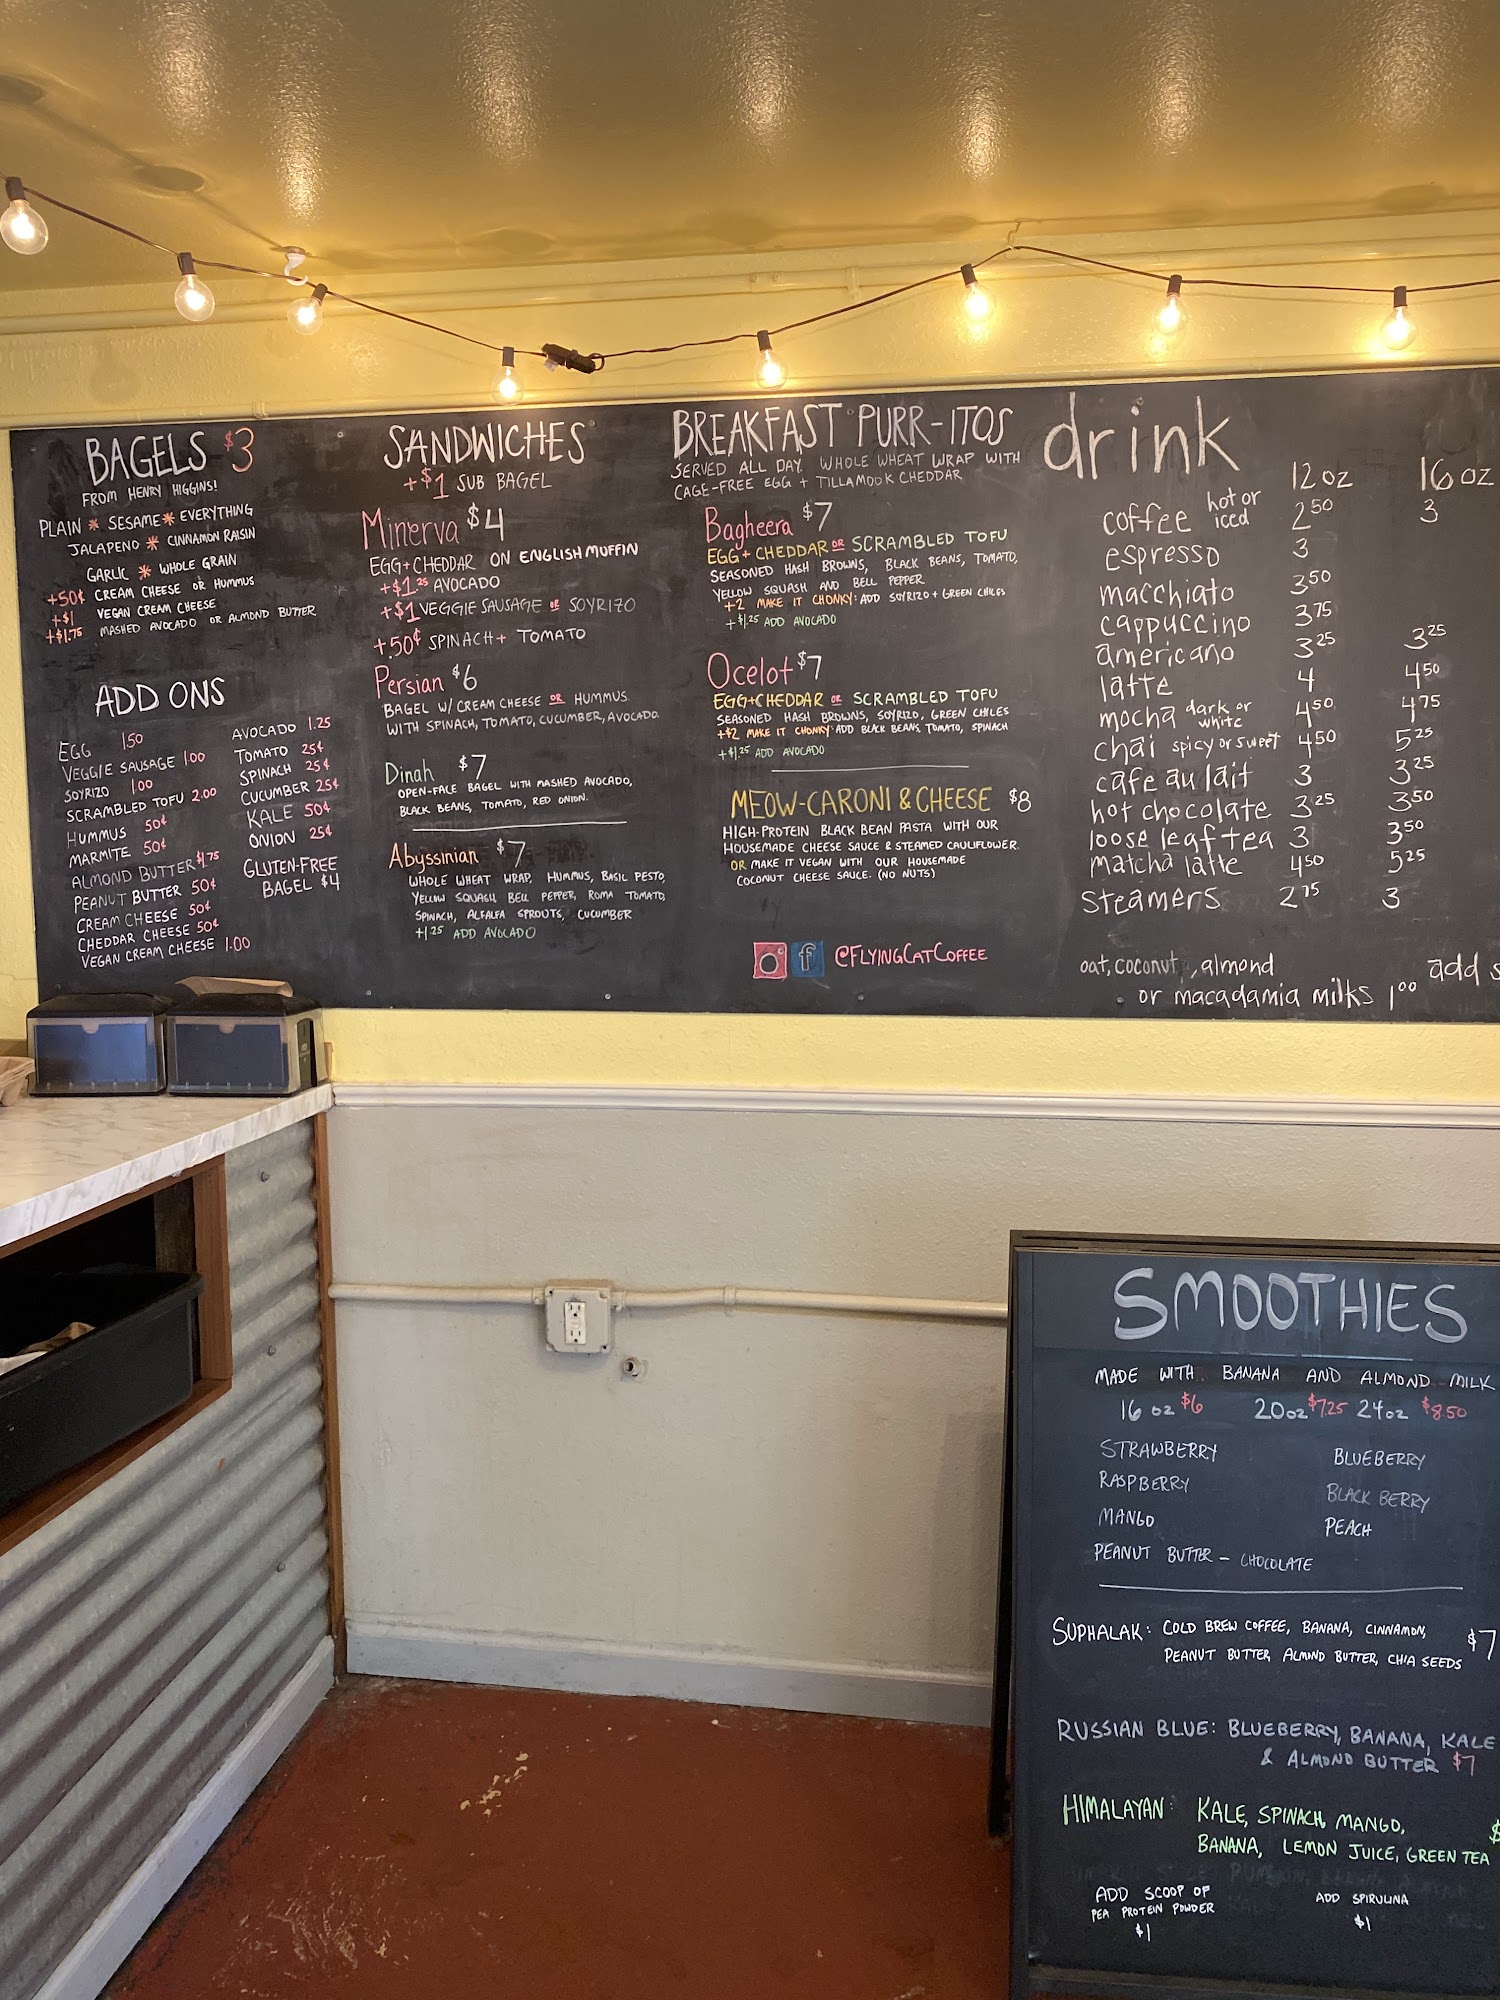 BAGELS $3
FROM HENRY HIGGINS!
PLAIN * SESAME * EVERYTHING
JALAPENO * CINNAMON RAISIN
GARLIC * WHOLE GRAIN
+50¢ CREAM CHEESE OR HUMMUS
+$1 VEGAN CREAM CHEESE
+$1.75 MASHED AVOCADO OR ALMOND BUTTER
ADD ONS
EGG 1.50
VEGGIE SAUSAGE 1.00
SOYRIZO 1.00
SCRAMBLED TOFU 2.00
HUMMUS 50¢
MARMITE 50¢
ALMOND BUTTER $1.75
PEANUT BUTTER 50¢
CREAM CHEESE 50¢
CHEDDAR CHEESE 50¢
VEGAN CREAM CHEESE 1.00
AVOCADO 1.25
TOMATO 25¢
SPINACH 25¢
CUCUMBER 25¢
KALE 50¢
ONION 25¢
GLUTEN-FREE
BAGEL $4
SANDWICHES
+$1 SUB BAGEL
Minerva $4
EGG+CHEDDAR ON ENGLISH MUFFIN
+$1.25 AVOCADO
+$1 VEGGIE SAUSAGE OR SOYRIZO
+.50¢ SPINACH + TOMATO
Persian $6
BAGEL W/ CREAM CHEESE OR HUMMUS
WITH SPINACH, TOMATO, CUCUMBER, AVOCADO.
Dinah $7
OPEN-FACE BAGEL WITH MASHED AVOCADO,
BLACK BEANS, TOMATO, RED ONION.
Abyssinian $7
WHOLE WHEAT WRAP, HUMMUS, BASIL PESTO,
YELLOW SQUASH, BELL PEPPER, ROMA TOMATO,
SPINACH, ALFALFA SPROUTS, CUCUMBER
+1.25 ADD AVOCADO
BREAKFAST PURR-ITOS
SERVED ALL DAY. WHOLE WHEAT WRAP WITH
CAGE-FREE EGG + TILLAMOOK CHEDDAR
Bagheera $7
EGG + CHEDDAR OR SCRAMBLED TOFU
SEASONED HASH BROWNS, BLACK BEANS, TOMATO,
YELLOW SQUASH AND BELL PEPPER
+2 MAKE IT CHONKY: ADD SOYRIZO + GREEN CHILES
+$1.25 ADD AVOCADO
Ocelot $7
EGG+CHEDDAR OR SCRAMBLED TOFU
SEASONED HASH BROWNS, SOYRIZO, GREEN CHILES
+$2 MAKE IT CHONKY: ADD BLACK BEANS, TOMATO, SPINACH
+$1.25 ADD AVOCADO
MEOW-CARONI & CHEESE $8
HIGH-PROTEIN BLACK BEAN PASTA WITH OUR
HOUSEMADE CHEESE SAUCE & STEAMED CAULIFLOWER.
OR MAKE IT VEGAN WITH OUR HOUSEMADE
COCONUT CHEESE SAUCE. (NO NUTS)
f @FLYINGCATCOFFEE
drink
12 oz 16 oz
coffee hot or iced 2.50 3
espresso 3
macchiato 3.50
cappuccino 3.75
americano 3.25 3.25
latte 4 4.50
mocha dark or white 4.50 4.75
chai spicy or sweet 4.50 5.25
cafe au lait 3 3.25
hot chocolate 3.25 3.50
loose leaf tea 3 3.50
matcha latte 4.50 5.25
steamers 2.75 3
oat, coconut, almond
or macadamia milks 1.00 add s
SMOOTHIES
MADE WITH BANANA AND ALMOND MILK
16 oz $6 20 oz $7.25 24 oz $8.50
STRAWBERRY BLUEBERRY
RASPBERRY BLACK BERRY
MANGO PEACH
PEANUT BUTTER - CHOCOLATE
SUPHALAK: COLD BREW COFFEE, BANANA, CINNAMON, $7
PEANUT BUTTER, ALMOND BUTTER, CHIA SEEDS
RUSSIAN BLUE: BLUEBERRY, BANANA, KALE
& ALMOND BUTTER $7
HIMALAYAN: KALE, SPINACH, MANGO, $
BANANA, LEMON JUICE, GREEN TEA
ADD SCOOP OF
PEA PROTEIN POWDER
$1
ADD SPIRULINA
$1